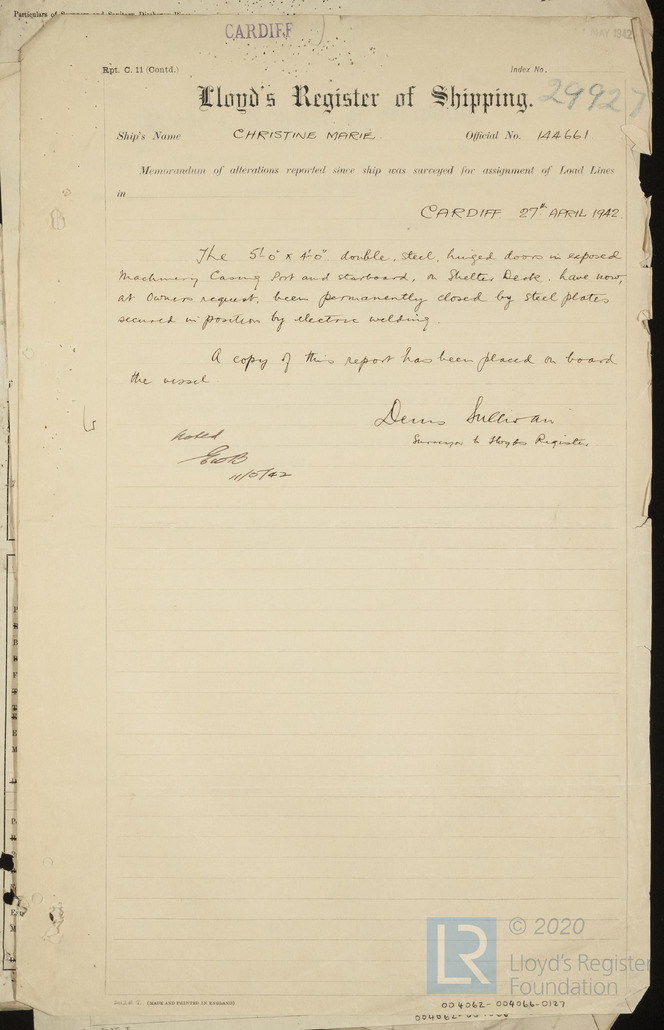 Particulars of
CARDIFF
MAY 1942
Rpt. C. 11 (Contd.)
Index No.
Lloyd's Register of Shipping.
29927
Ship's Name CHRISTINE MARIE Official No. 144661
Memorandum of alterations reported since ship was surveyed for assignment of Load Lines
in
CARDIFF 27th APRIL 1942.
The 5'-0" x 4'-0" double, steel, hinged doors in exposed
Machinery Casing Port and starboard, on Shelter Deck, have now,
at Owners request, been permanently closed by steel plates
secured in position by electric welding.
A copy of this report has been placed on board
the vessel
Denis Sullivan
Surveyor to Lloyds Register
Noted
11/5/42
© 2020
LR
Lloyd's Register
Foundation
(MADE AND PRINTED IN ENGLAND)
004062-004066-0127